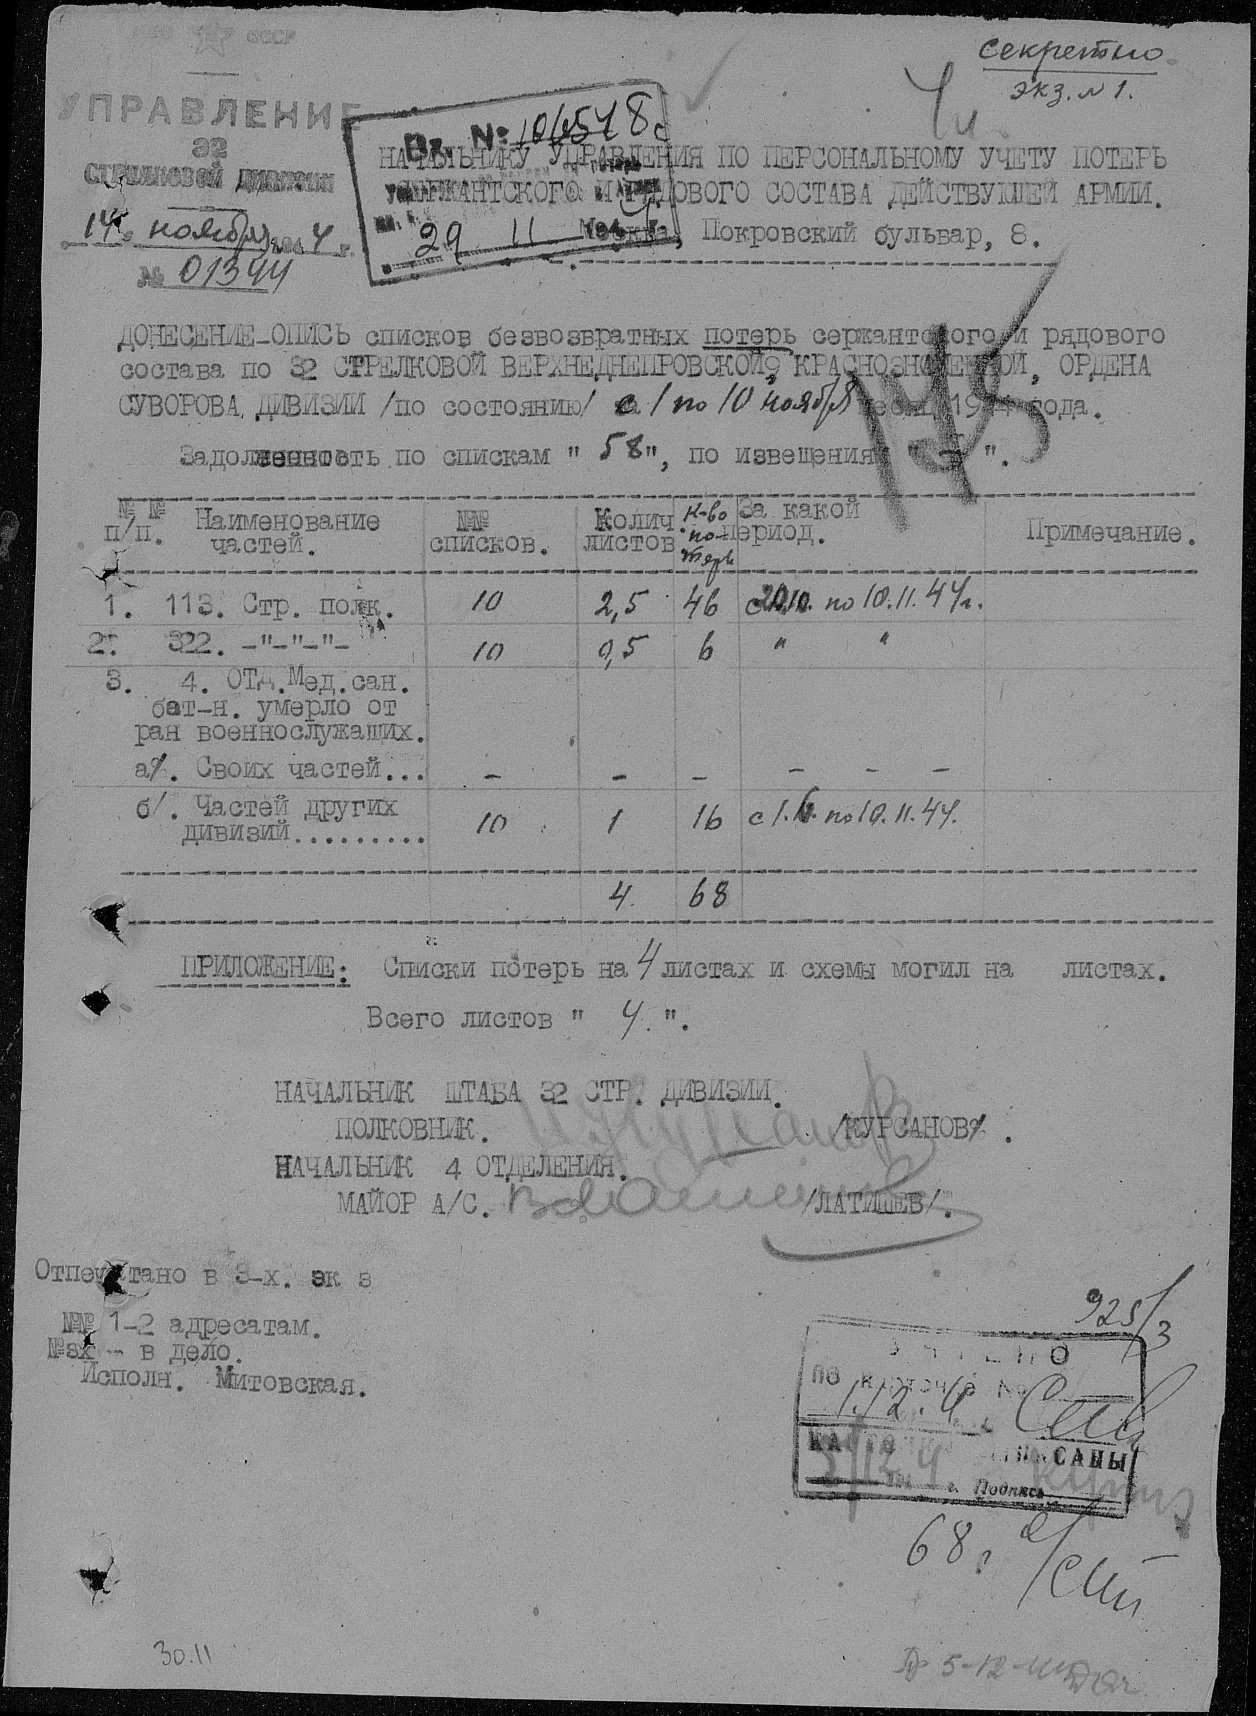 НКО СССР
Секретно.
экз. № 1.
УПРАВЛЕНИЕ
32
СТРЕЛКОВОЙ ДИВИЗИИ
14 ноября 1944 г.
№ 01344
Вх. №
29 11 194 г.
НАЧАЛЬНИКУ УПРАВЛЕНИЯ ПО ПЕРСОНАЛЬНОМУ УЧЕТУ ПОТЕРЬ
СЕРЖАНТСКОГО И РЯДОВОГО СОСТАВА ДЕЙСТВУЮЩЕЙ АРМИИ.
Москва, Покровский бульвар, 8.
ДОНЕСЕНИЕ-ОПИСЬ списков безвозвратных потерь сержантского и рядового
состава по 32 СТРЕЛКОВОЙ ВЕРХНЕДНЕПРОВСКОЙ, КРАСНОЗНАМЕННОЙ, ОРДЕНА
СУВОРОВА, ДИВИЗИИ /по состоянию/ с 1 по 10 ноября месяц 1944 года.
Задолженность по спискам " 58", по извещения " ".
№ № п/п. Наименование частей. №№ списков. Колич листов К-во потерь За какой период. Примечание.
1. 113. Стр. полк. 10 2,5 46 с по 10.11.44г.
2. 322. -"-"-"- 10 0,5 6 " "
3. 4. ОТд.Мед.сан.
бат-н. умерло от
ран военнослужащих.
а/. Своих частей... - - - - - -
б/. Частей других
дивизий......... 10 1 16 с 1.11. по 10.11.44.
4. 68
ПРИЛОЖЕНИЕ: Списки потерь на 4 листах и схемы могил на листах.
Всего листов " 4. ".
НАЧАЛЬНИК ШТАБА 32 СТР. ДИВИЗИИ.
ПОЛКОВНИК. /КУРСАНОВ/.
НАЧАЛЬНИК 4 ОТДЕЛЕНИЯ.
МАЙОР А/С. /ЛАТИШЕВ/.
Отпечатано в 3-х. эк з
№№ 1-2 адресатам.
№3х - в дело.
Исполн. Митовская.
925/3
УЧТЕНО
по карточке №
1.12.4
КАРТО ПИСАНЫ
г. Подпись
68
30.11
5-12-44